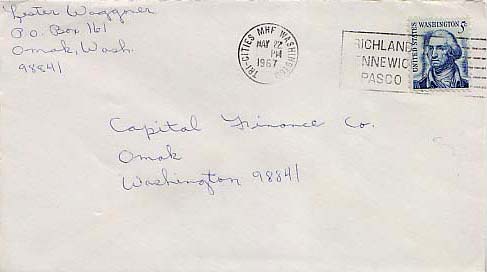 Lester Waggner
P.O. Box 161
Omak, Wash.
98841
TRI-CITIES MHF WASHINGTON
MAY 22
PM
1967
RICHLAND
ENNEWICK
PASCO
UNITED STATES
WASHINGTON 5c
Capital Finance Co.
Omak
Washington 98841